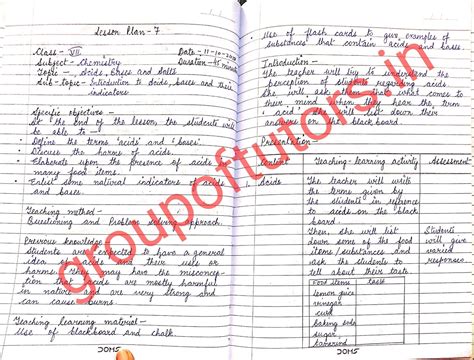 Lesson Plan - 7
Class - VII
Date - 11-10-20
Subject - Chemistry
Duration - 35 minutes
Topic - Acids, Bases and Salts
Sub-topic - Introduction to Acids, bases, and their
indicators
Specific objectives -
At the end of the lesson, the students will
be able to -
• Define the terms 'acids' and 'bases'.
• Discuss the harms of acids.
• Elaborate upon the presence of acids in
many food items.
• Enlist some natural indicators of acids
and bases.
Teaching method -
Questioning and Problem solving approach.
Previous knowledge
Students are expected to have a general
idea of acids and their use or
harms. They may have the misconcep-
tion that acids are mostly harmful
in nature and are very strong and
can cause burns.
Teaching learning material -
Use of blackboard and chalk.
JOMS
• Use of flash cards to give examples of
substances that contain acids and bases
Introduction -
The teacher will try to understand the
perception of students regarding acids
She will ask them that what comes to
their mind when they hear the term
'acid'. She will list down their
answers on the blackboard.
Presentation
Content
Teaching-learning activity
Assessment
1. Acids
The teacher will write
the terms given by
the students in reference
to acids on the black
board.
Then, she will list
down some of the food
items/substances and
asks the students to
tell about their taste.
Students
will give
varied
responses.
Food items
taste
lemon juice
vinegar
curd
baking soda
sugar
tamarind
JOMS
groupoftutors.in